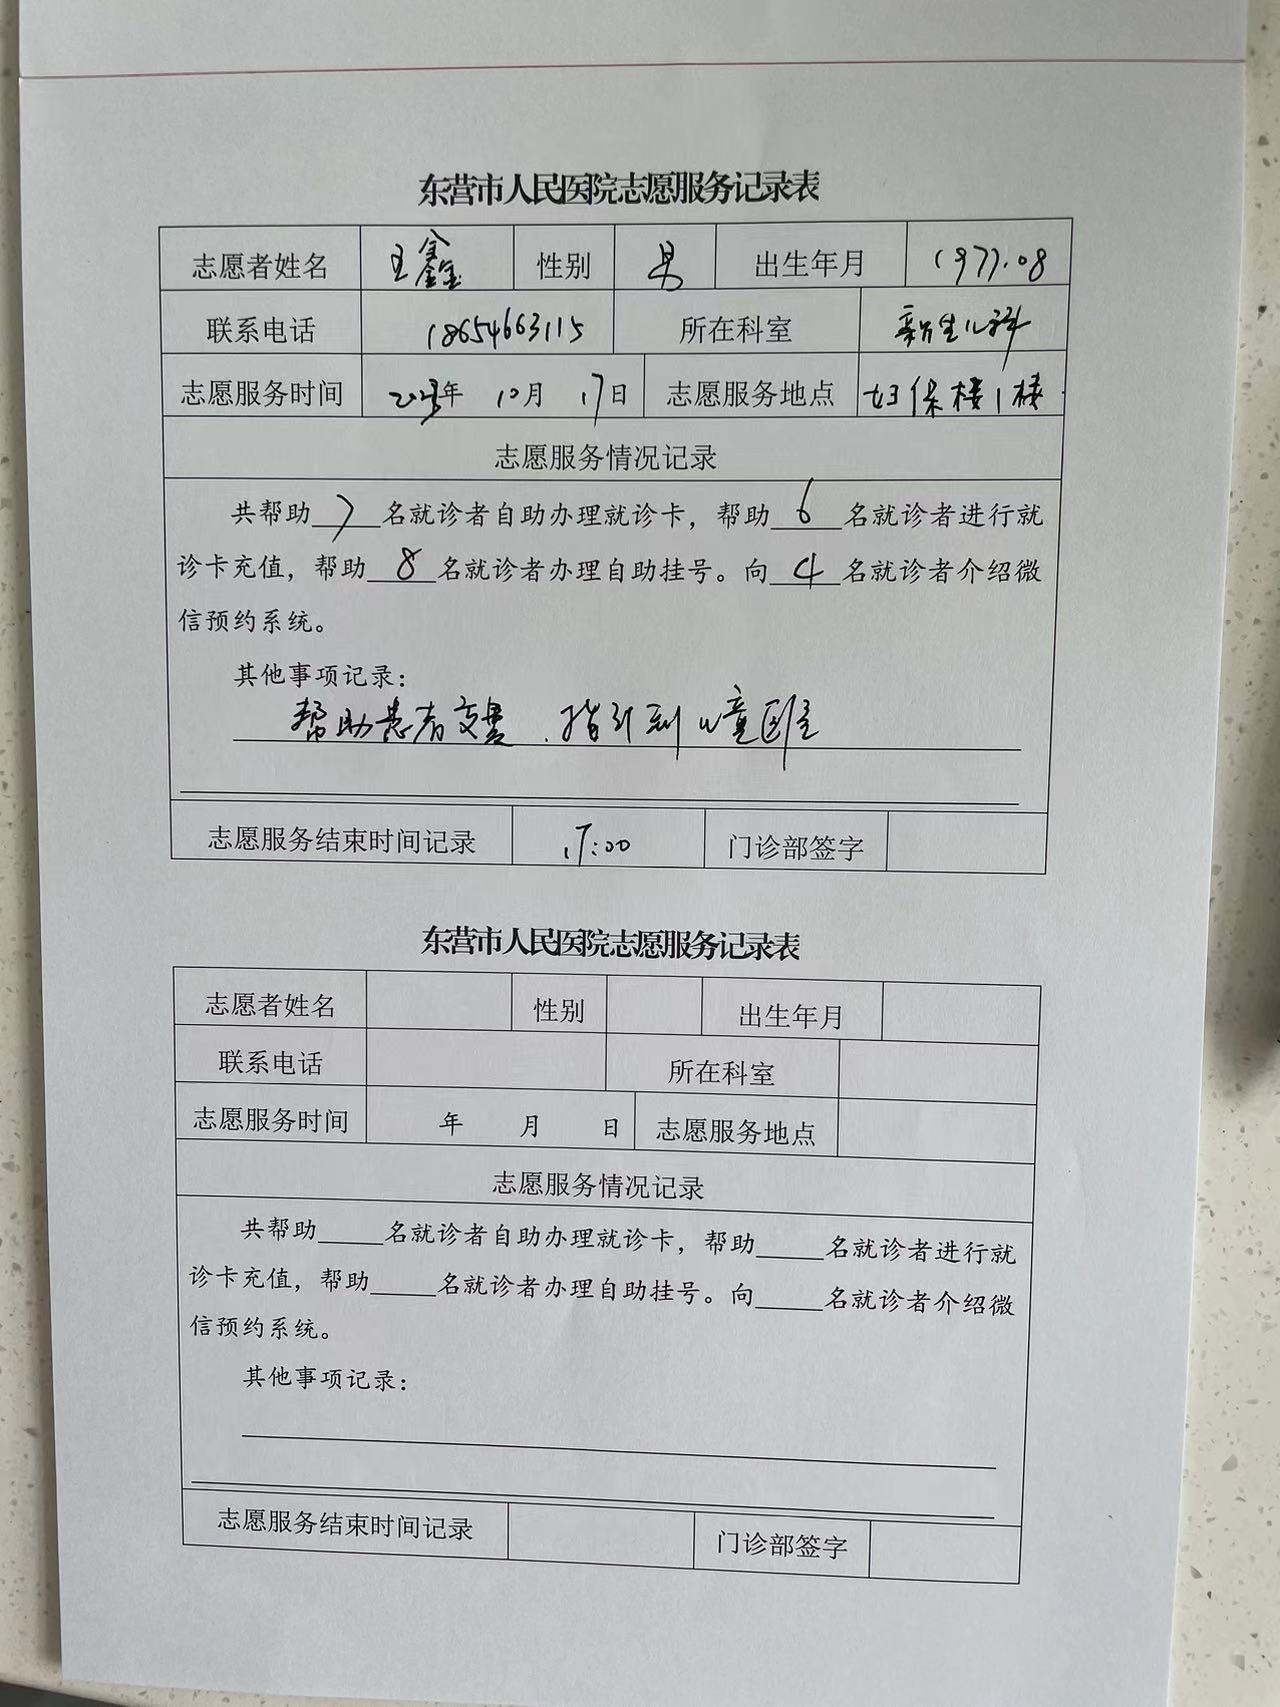 东营市人民医院志愿服务记录表
志愿者姓名 王鑫 性别 男 出生年月 1977.08
联系电话 18654663115 所在科室 新生儿科
志愿服务时间 年 10月 17日 志愿服务地点 妇保楼1楼
志愿服务情况记录
共帮助7名就诊者自助办理就诊卡，帮助6名就诊者进行就
诊卡充值，帮助8名就诊者办理自助挂号。向4名就诊者介绍微
信预约系统。
其他事项记录：
帮助患者 指引到儿童医
志愿服务结束时间记录 17:00 门诊部签字
东营市人民医院志愿服务记录表
志愿者姓名 性别 出生年月
联系电话 所在科室
志愿服务时间 年 月 日 志愿服务地点
志愿服务情况记录
共帮助_____名就诊者自助办理就诊卡，帮助_____名就诊者进行就
诊卡充值，帮助_____名就诊者办理自助挂号。向_____名就诊者介绍微
信预约系统。
其他事项记录：
志愿服务结束时间记录 门诊部签字